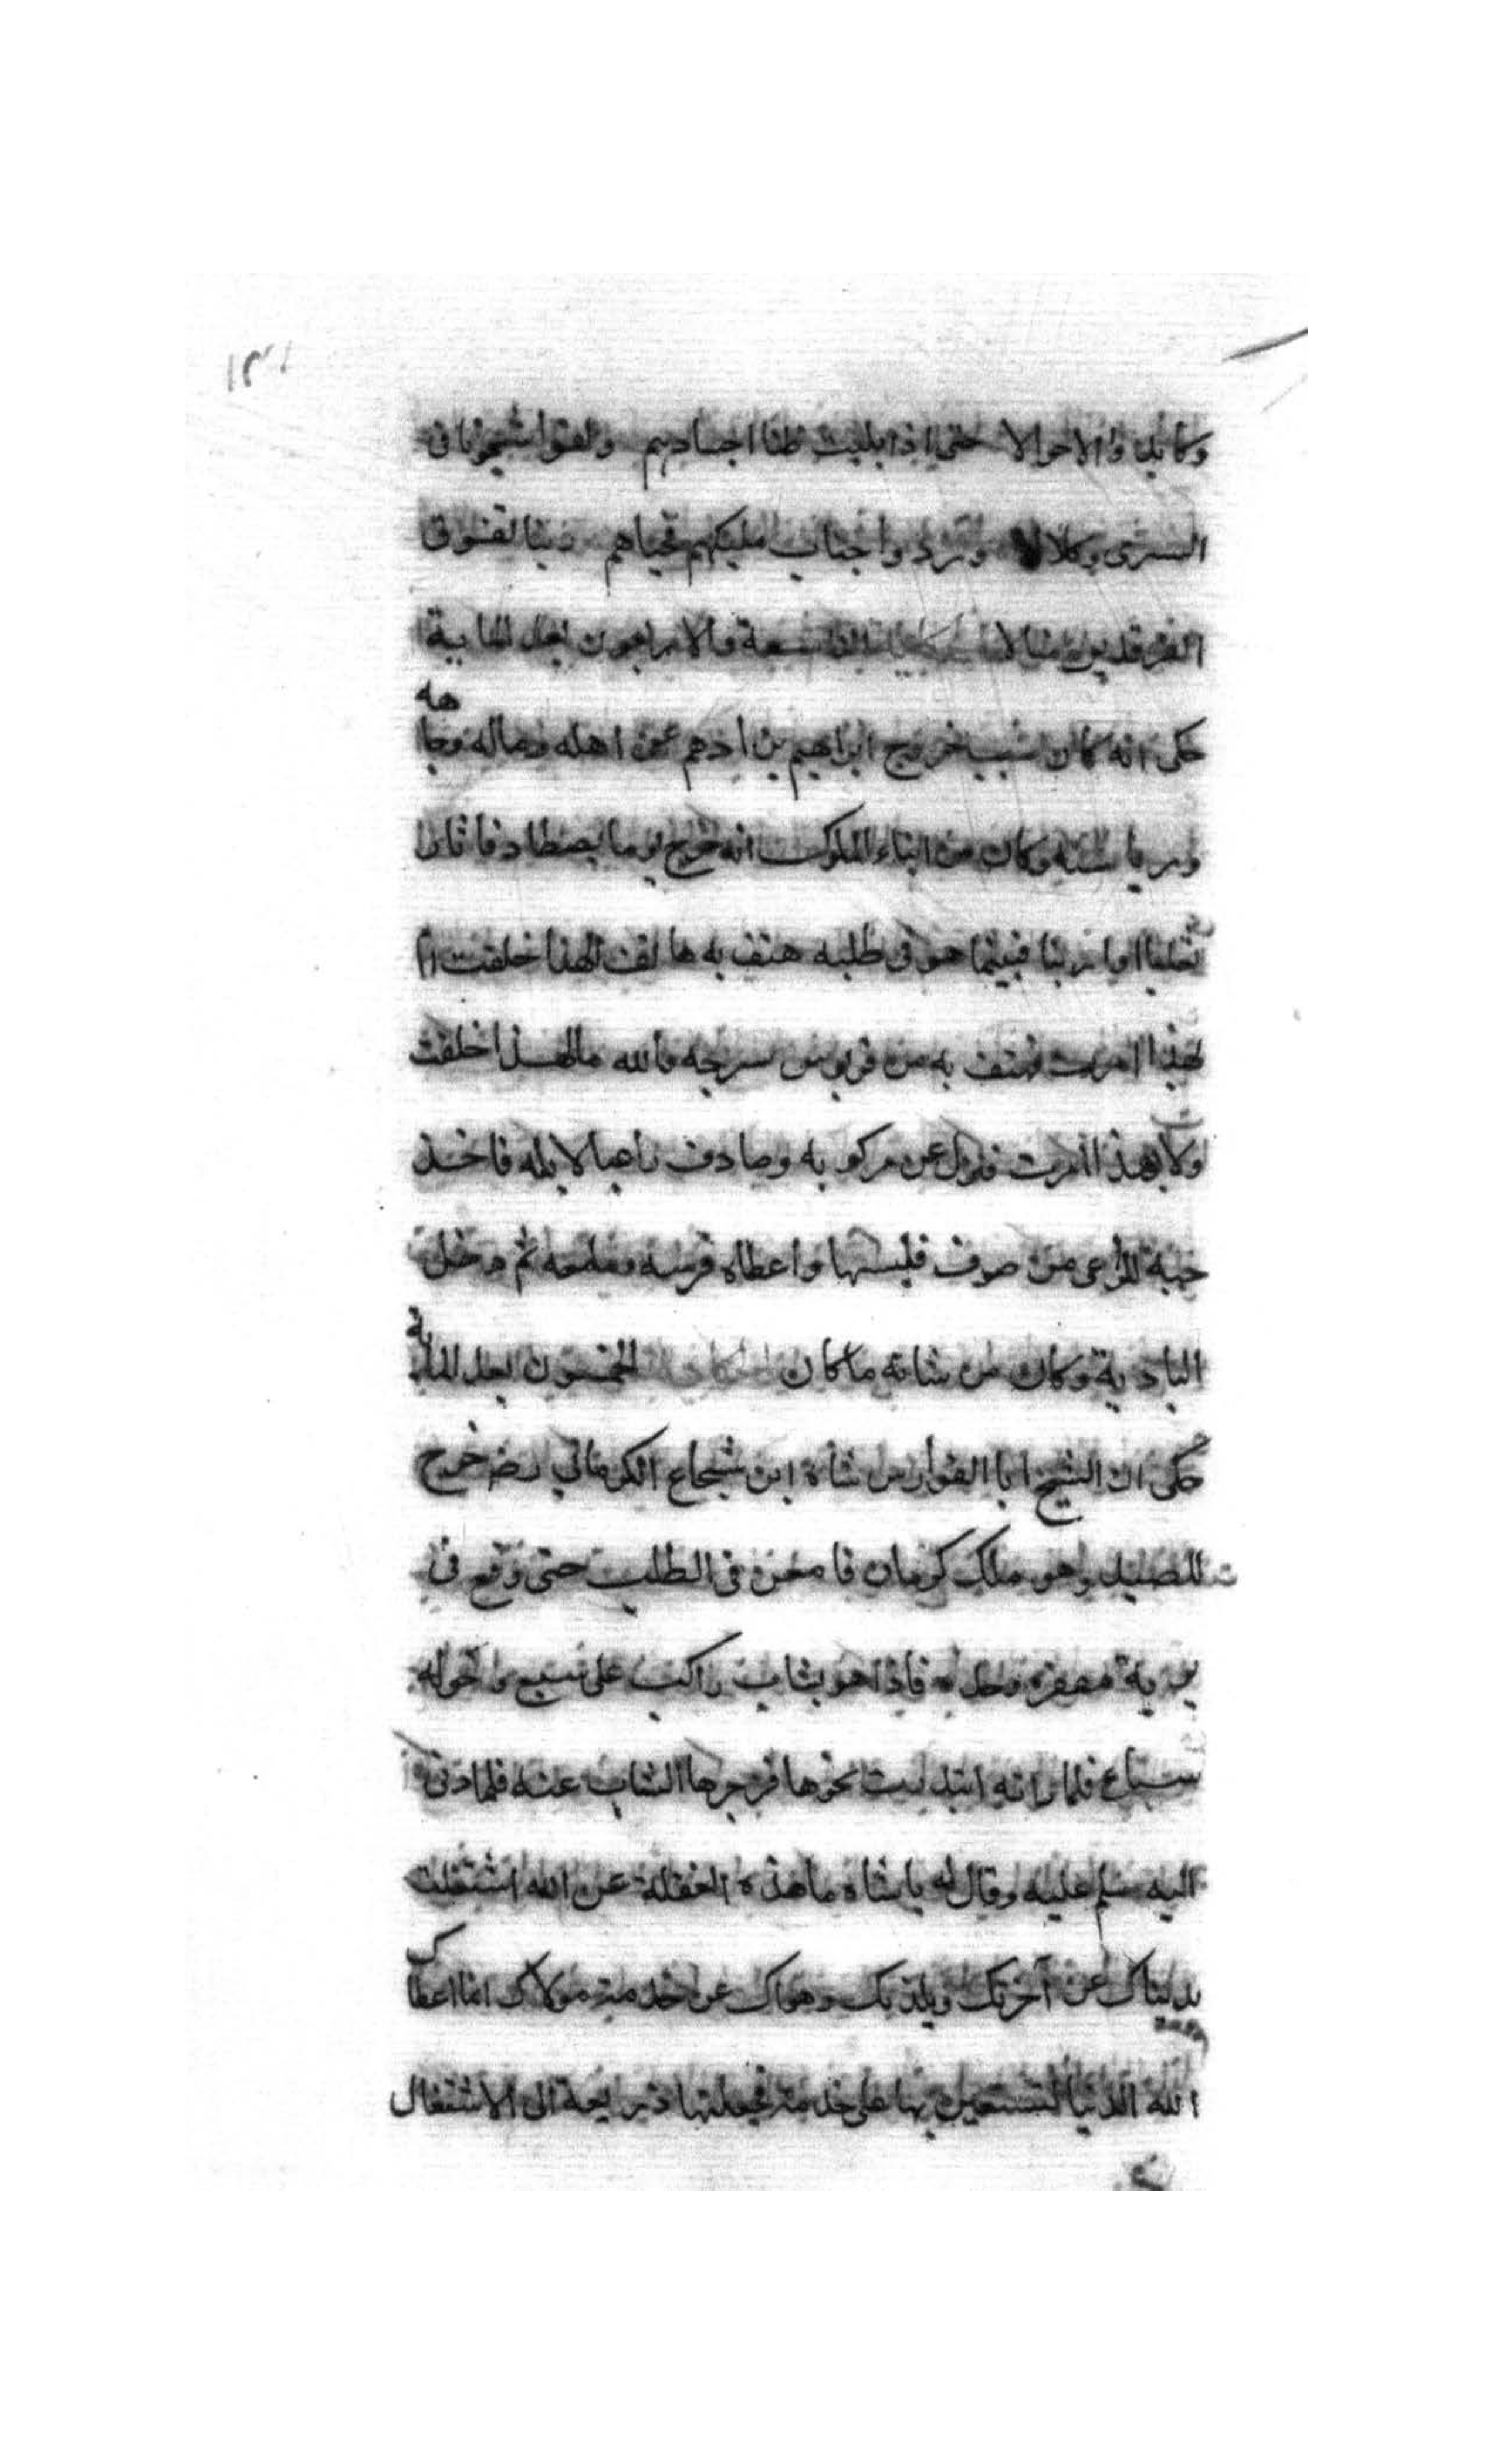 وكابدوا الاحوالا حتى اذا بليت ظنا اجسادهم ولقوا شجونا في
السرى وكلالا وردوا جناب مليكهم فحباهم
الفرقدين منالا الحكاية التاسعة والاربعون بعد المايه
حكى انه كان سبب خروج ابراهيم بن ادهم عن اهله وماله وجاهه
ورياسته وكان من ابناء الملوك انه خرج يوما يصطاد فاثار
ثعلبا او ارنبا فبينما هو في طلبه هتف به هاتف الهذا خلقت ام
بهذا امرت فهتف به من قربوس سرجه والله ما لهذا خلقت
ولا بهذا امرت فنزل عن مركوبه وصادف راعيا لابيه فاخذ
جبة للراعي من صوف فلبسها واعطاه فرسه وما معه ثم دخل
البادية وكان من شانه ما كان الحكاية الخمسون بعد الماية
حكى ان الشيخ ابا الفوارس شاه ابن شجاع الكرماني رضه خرج
للصيد وهو ملك كرمان فامعن في الطلب حتى وقع في
برية مقفرة وحده فاذا هو بشاب راكب على سبع وحوله
سباع فلما راته ابتدرت نحوها فزجرها الشاب عنه فلما دنى
اليه سلم عليه وقال له يا شاه ما هذه الغفلة عن الله اشتغلت
بدنياك عن آخرتك وبلذتك وهواك عن خدمة مولاك انما اعطاك
الله الدنيا لتستعين بها على خدمته فجعلتها ذريعة الى الاشتغال